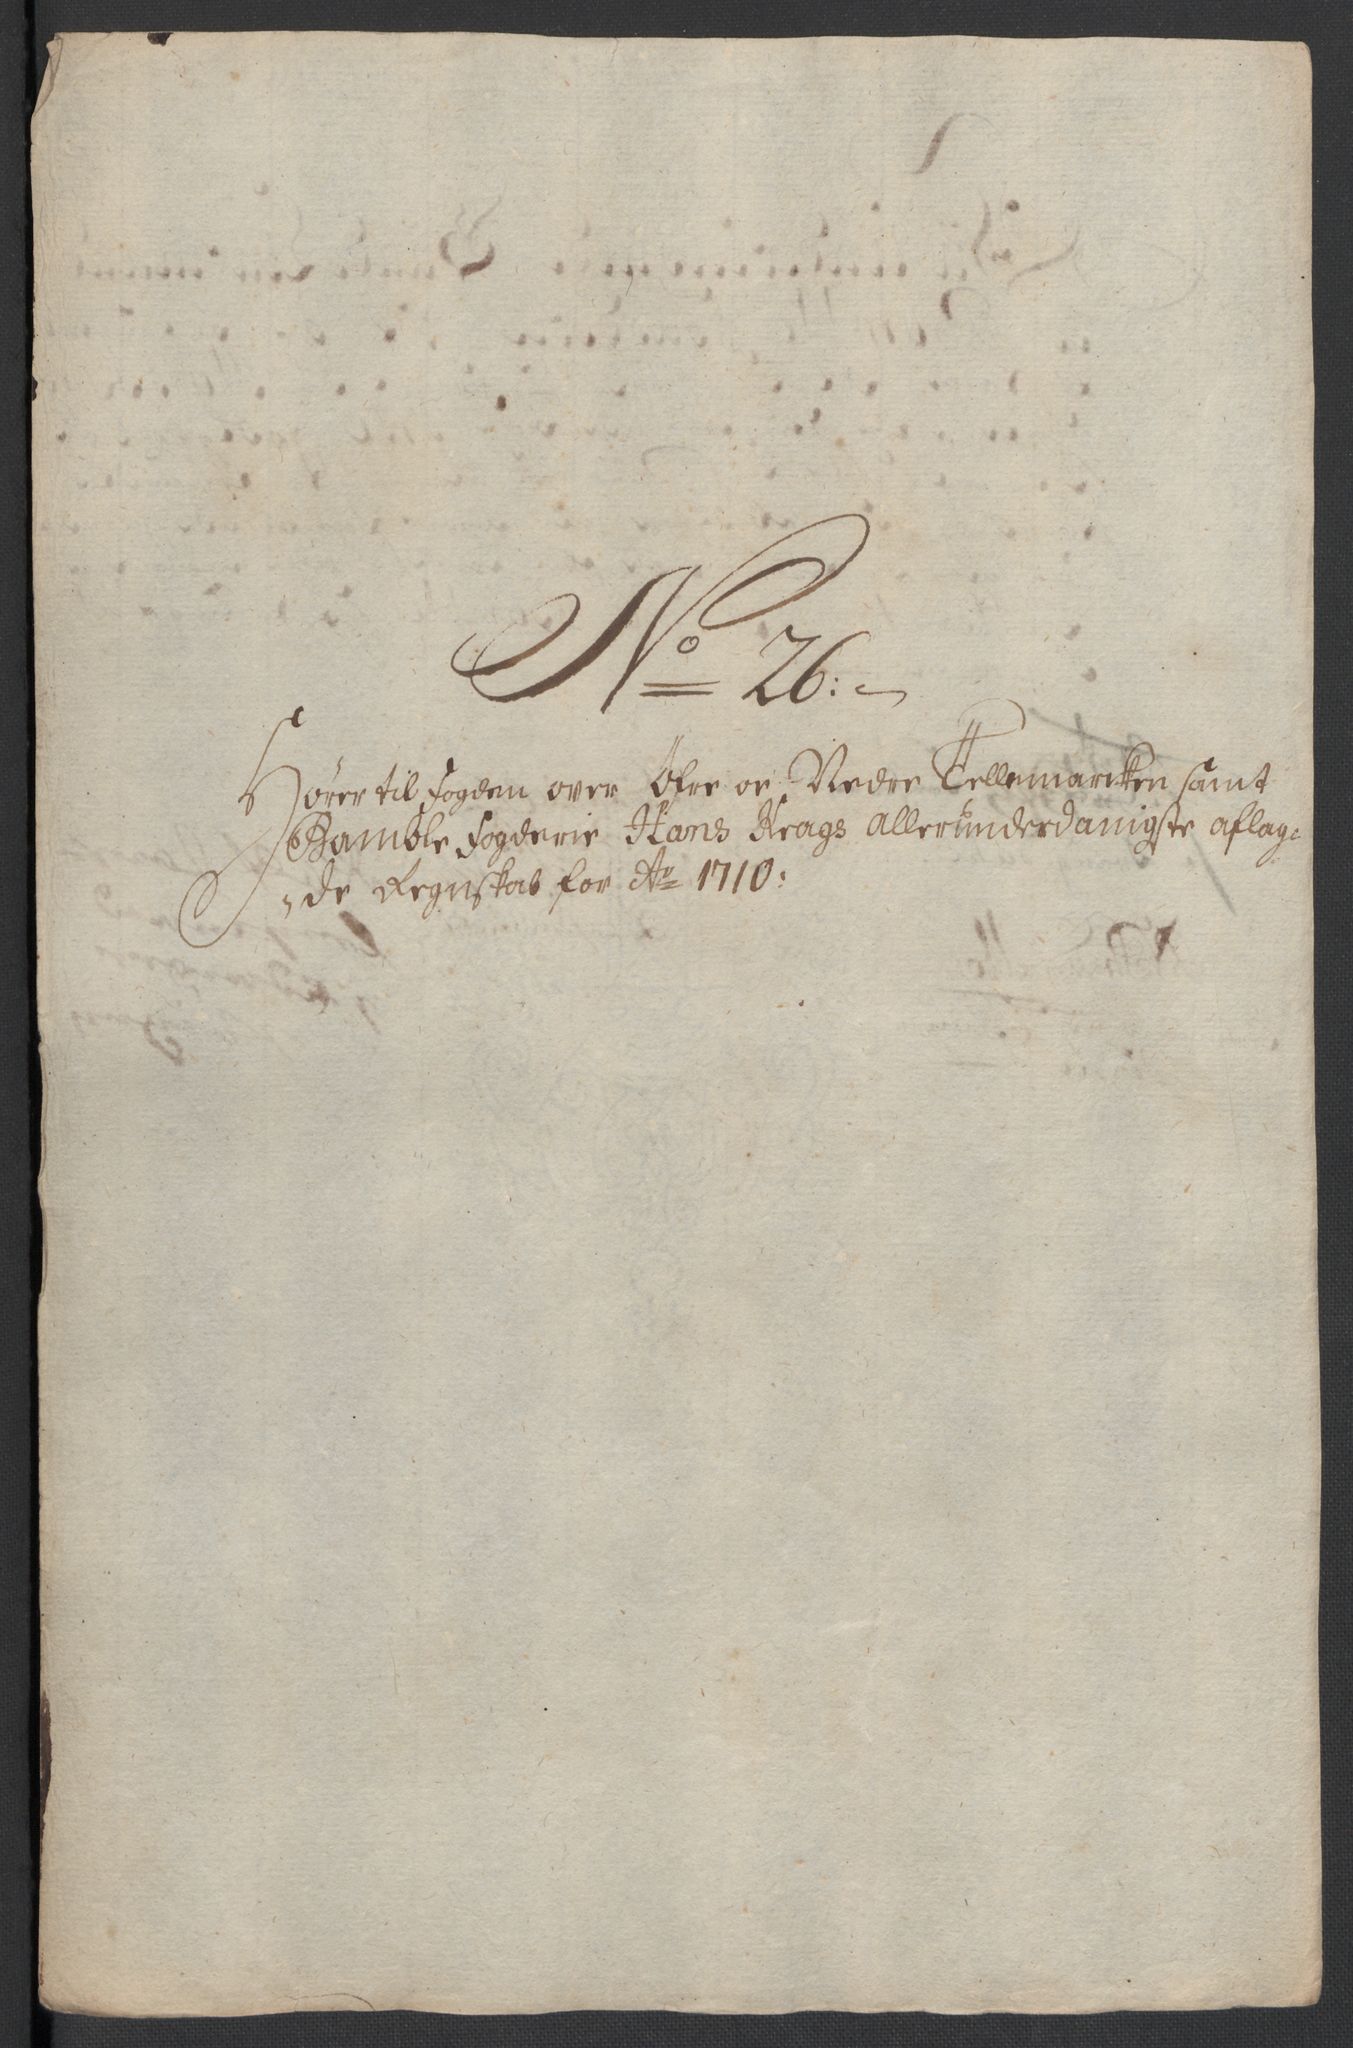 No 26:
Hörer til Fogden over Öfre oc Nedre Tellemarcken samt
Bamble Fogderie Hans Krags Allerunderdanigste aflag=
de Regnskab for Ao 1710: